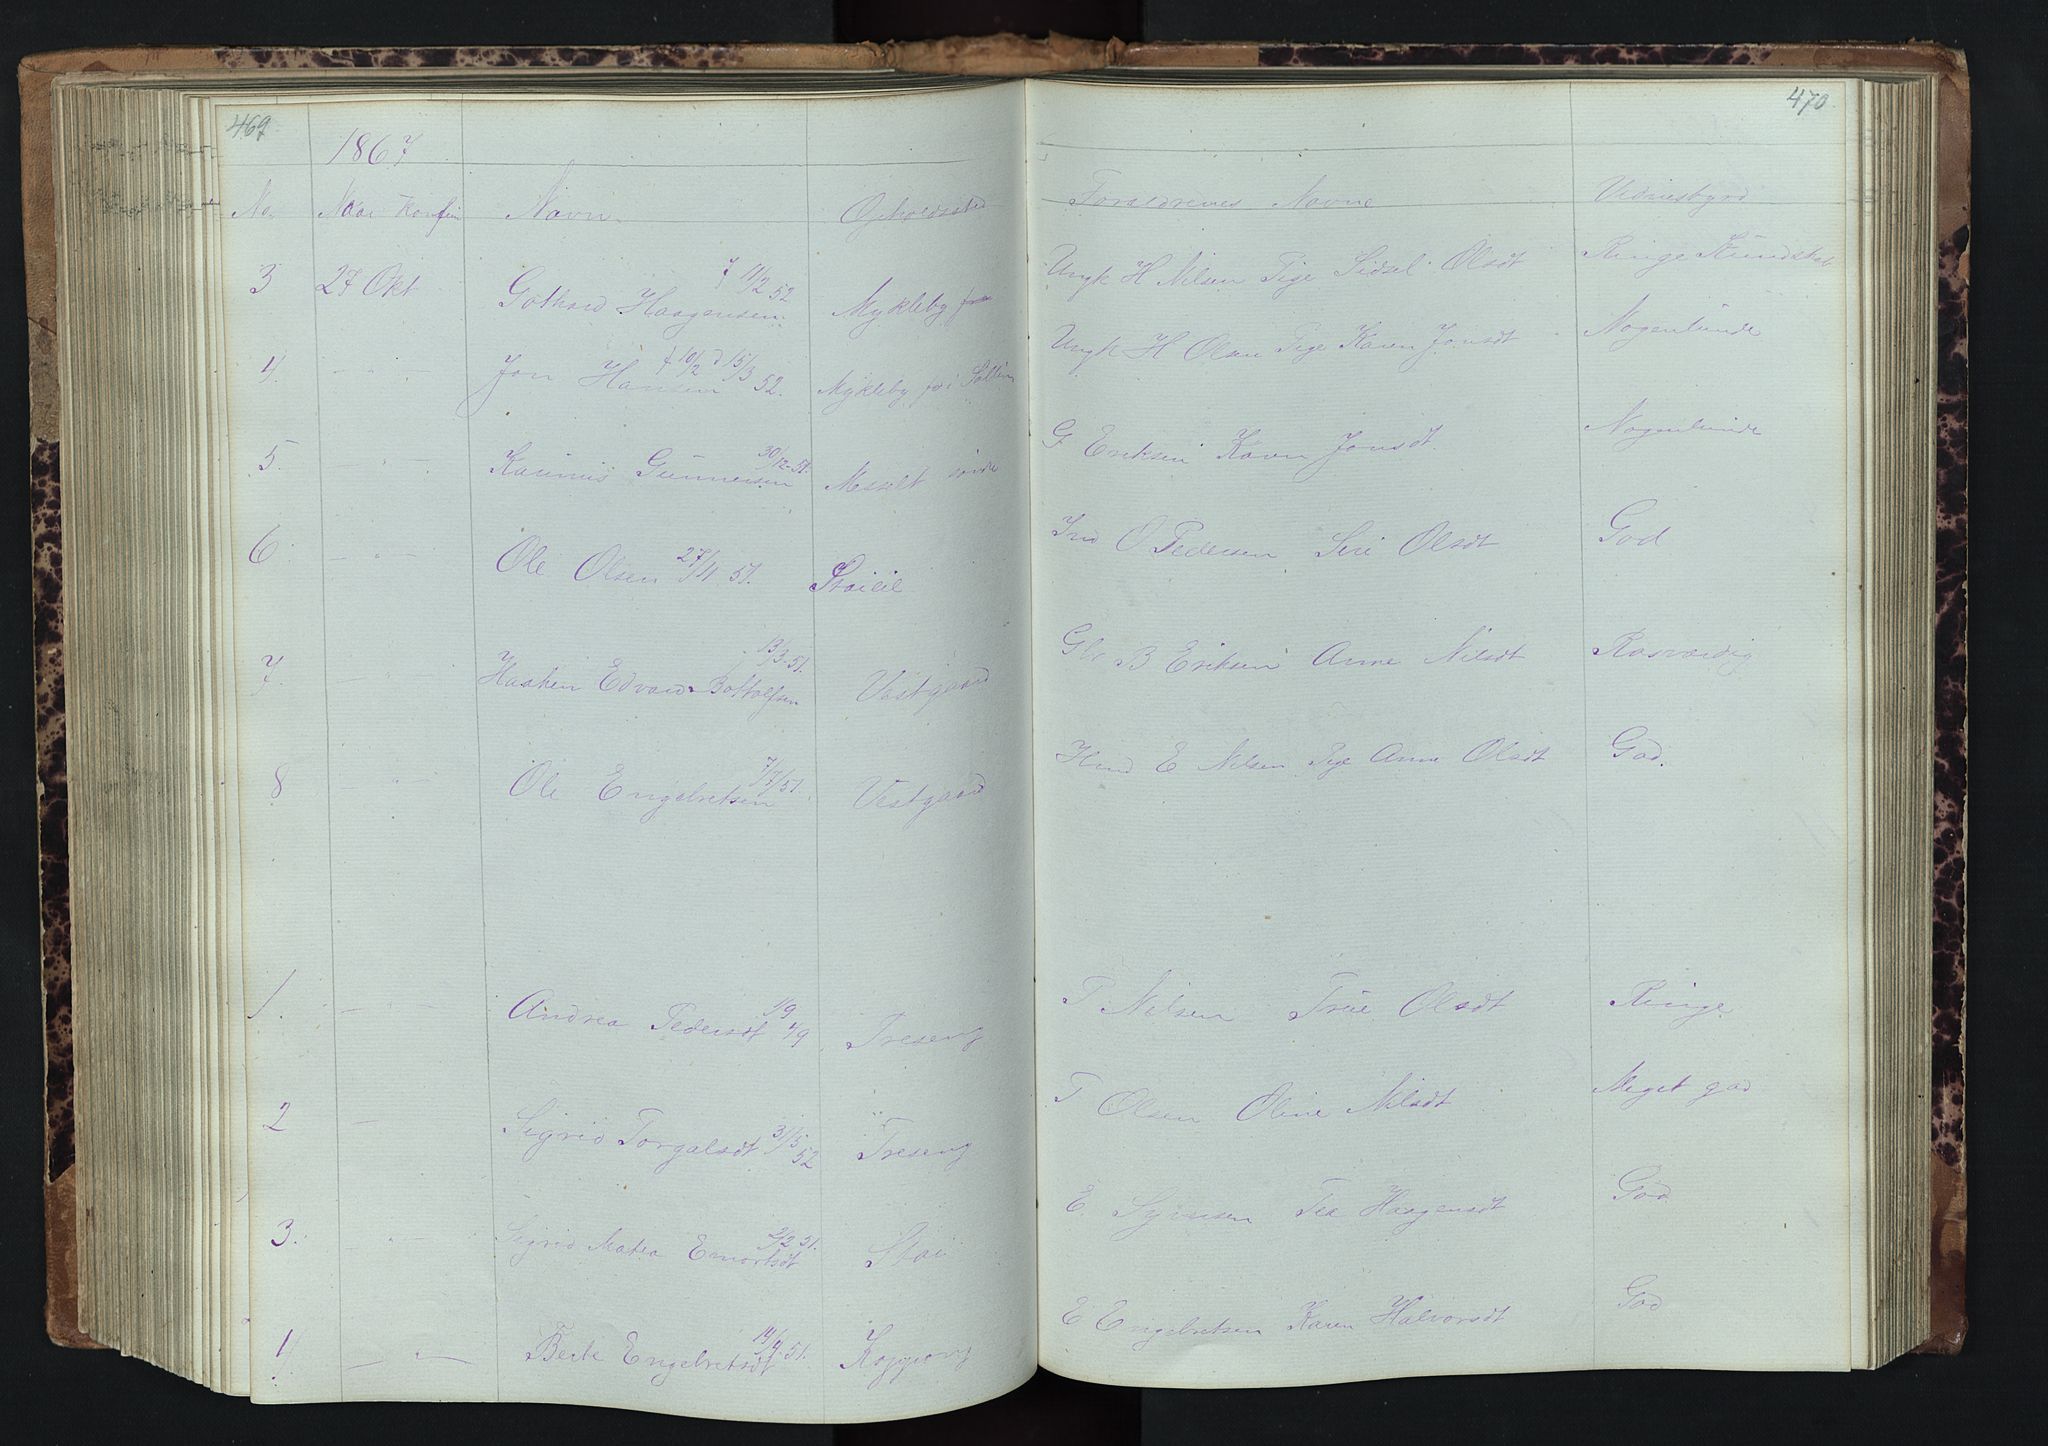 469
470
1867
No. Naar Konfir Navn Opholdssted Forældrenes Navne Vidnesbyrd
3 27 Okt Gothard Haagensen f 11/2 52 Mykleby Ungk H Nilsen Pige Sidsel Olsdt Ringe Kundskab
4. — „ — Jon Hansen f 10/2 d 15/3 52. Mykleby Ungk H Olsen Pige Karen Jonsdt Nogenlunde
5. — „ — Karinus Gunnersen 30/12-51. Messelt søndre G Eriksen Karen Jonsdt. Nogenlunde
6. — „ — Ole Olsen 27/11 51. Ind O Pedersen Siri Olsdt God
7. — „ — Haaken Edvard Bottolfsen 13/3-51. Vestgaard Gbr B Eriksen Anne Nilsdt Rosværdig
8 — „ — Ole Engelretsen 7/7/51. Vestgaard E Nilsen Pige Anne Olsdt God.
1. — „ — Andrea Pedersdt 1/9 49 Treseng P Nilsen Olsdt Ringe
2 — Sigrid Torgalsdt 31/5 52 Treseng T Olsen Oline Nilsdt Meget god
3. — „ — Sigrid Matea 2/2 51. Stai E. Haagensdt God
4 — „ — Berte Engelretsdt 19/9-51. Koppang E Engelretsen Karen Halvorsdt God